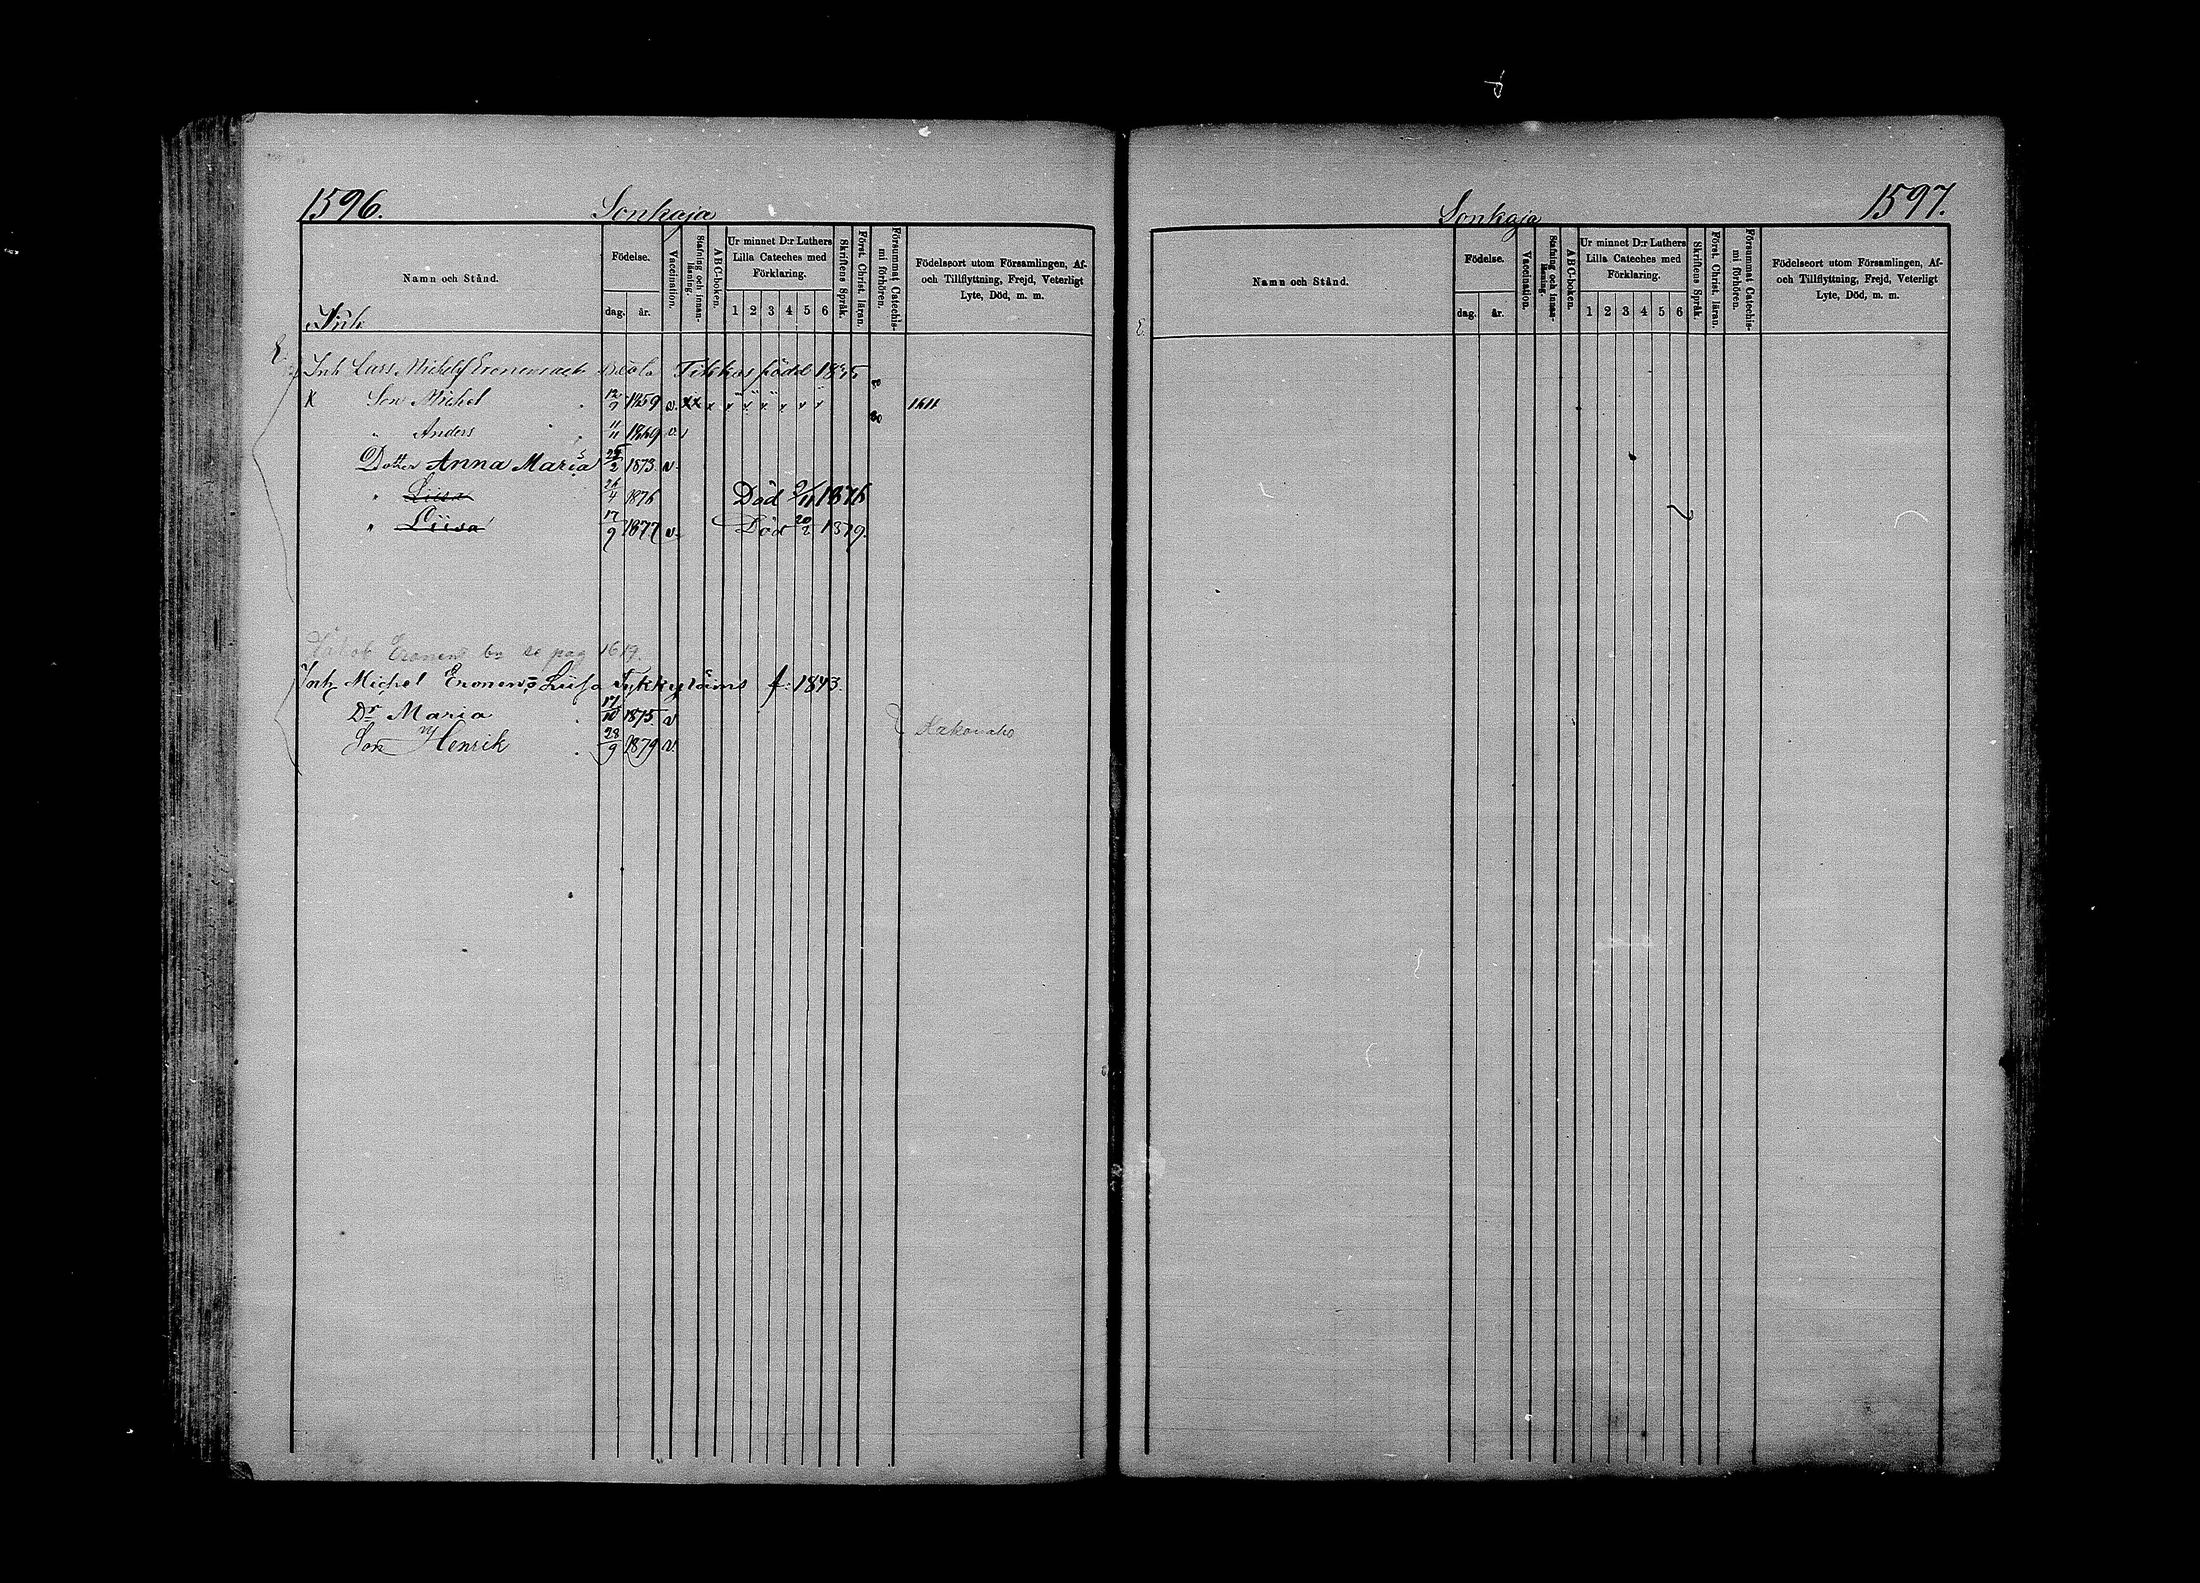 1596.
Sonkaja
Namn och Stånd.
Födelse.
dag.
år.
Vaccination.
Stafning och innanläsning.
ABC-boken.
Ur minnet D:r Luthers Lilla Cateches med Förklaring.
1 2 3 4 5 6
Skriftens Språk.
Först. Christ. läran.
Försummat Catechismi förhören.
Födelseort utom Församlingen, Af- och Tillflyttning, Frejd, Veterligt Lyte, Död, m. m.
Inh
Inh Lars Tikkas född
Son Michel 12/9 1859 v. xx 1611
" Anders 11/11 1869 v.
Dotter Anna Maria 1873 v.
" Liisa 26/4 1876 Död 1876
" Liisa 17/9 1877 v. Död 20/2 1879.
Eronens se pag 1619.
Inh Michel Eronens Liisa f: 1843.
Dr Maria 17/10 1875 v
Son Henrik 28/9 1879 v.
1597.
Sonkaja
Namn och Stånd.
Födelse.
dag.
år.
Vaccination.
Stafning och innanläsning.
ABC-boken.
Ur minnet D:r Luthers Lilla Cateches med Förklaring.
1 2 3 4 5 6
Skriftens Språk.
Först. Christ. läran.
Försummat Catechismi förhören.
Födelseort utom Församlingen, Af- och Tillflyttning, Frejd, Veterligt Lyte, Död, m. m.